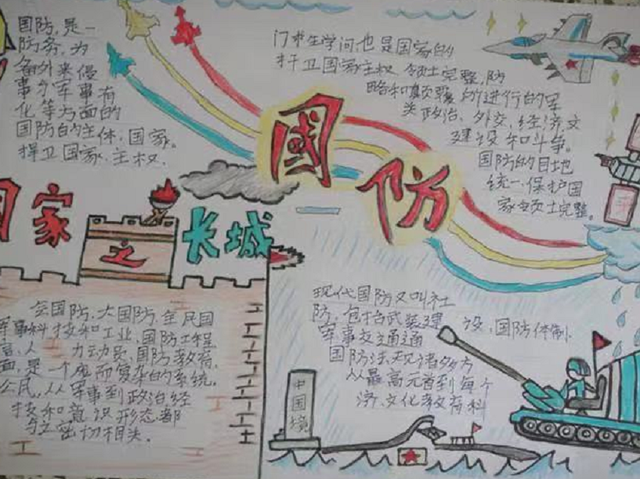 国防,是一
防务,为
备外来侵
事少军事有
化等方面的
国防的主体,国家。
捍卫国家、主权、
门求生学问也是国家的
扞卫国家主权、领土完整,防
略和颠覆,所进行的军
关政治、外交、经济、文
建设和斗争。
国防的目地
统一,保护国
家领土完整。
國防
国家之长城
全国防,大国防,全民国
军事科技和工业,国防工程
力动员,国防教育,
面,是一个庞而复杂的系统,
公民,从军事到政治经
技和意识形态都
与之密切相关。
现代国防又叫社
防,包括武装建设,国防体制
军事交通通
国防法规诸多方
从最高元首到每个
济、文化教育科
中国境